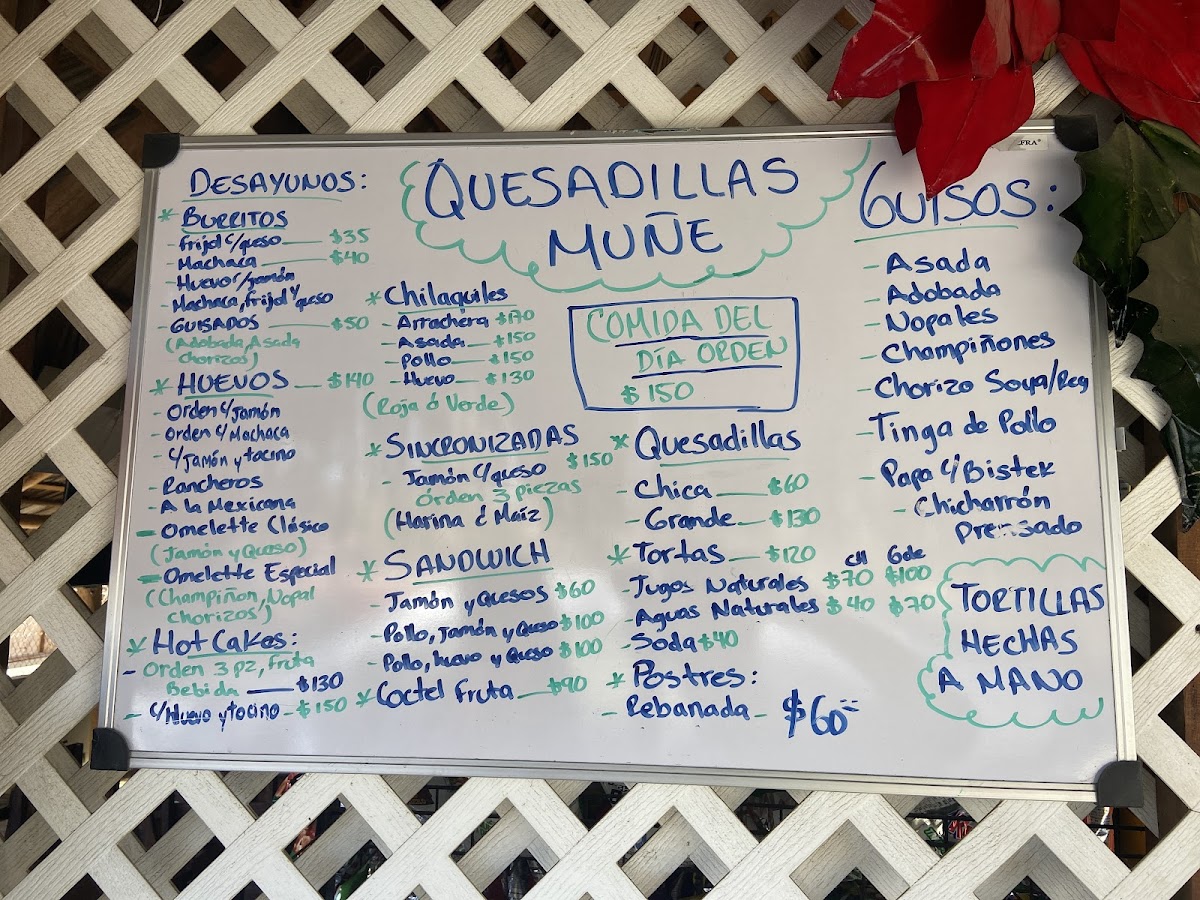 DESAYUNOS:
* BURRITOS
- Frijol c/queso — $35
- Machaca — $40
- Huevo c/jamón
- Machaca, frijol y queso
- GUISADOS — $50
(Adobada, Asada
chorizos)
* HUEVOS — $140
- Orden c/Jamón
- Orden c/Machaca
- c/Jamón y tocino
- Rancheros
- A la Mexicana
- Omelette Clásico
(Jamón y Queso)
- Omelette Especial
(Champiñon, Nopal
chorizos)
* Hot Cakes:
- Orden 3 pz, fruta
Bebida — $130
- c/Huevo y tocino - $150
QUESADILLAS
MUÑE
* Chilaquiles
- Arrachera $170
- Asada — $150
- Pollo — $150
- Huevo — $130
(Roja ó Verde)
* SINCRONIZADAS
- Jamón c/queso $150
Orden 3 piezas
(Harina ó Maíz)
* SANDWICH
- Jamón y Quesos $60
- Pollo, Jamón y Queso $100
- Pollo, huevo y Queso $100
* Coctel Fruta — $90
COMIDA DEL
DÍA ORDEN
$150
* Quesadillas
- Chica — $60
- Grande — $130
* Tortas — $120
CH Gde
- Jugos Naturales $70 $100
- Aguas Naturales $40 $70
- Soda $40
* Postres:
- Rebanada - $60
GUISOS:
- Asada
- Adobada
- Nopales
- Champiñones
- Chorizo Soya/Res
- Tinga de Pollo
- Papa c/Bistek
- Chicharrón
Prensado
TORTILLAS
HECHAS
A MANO